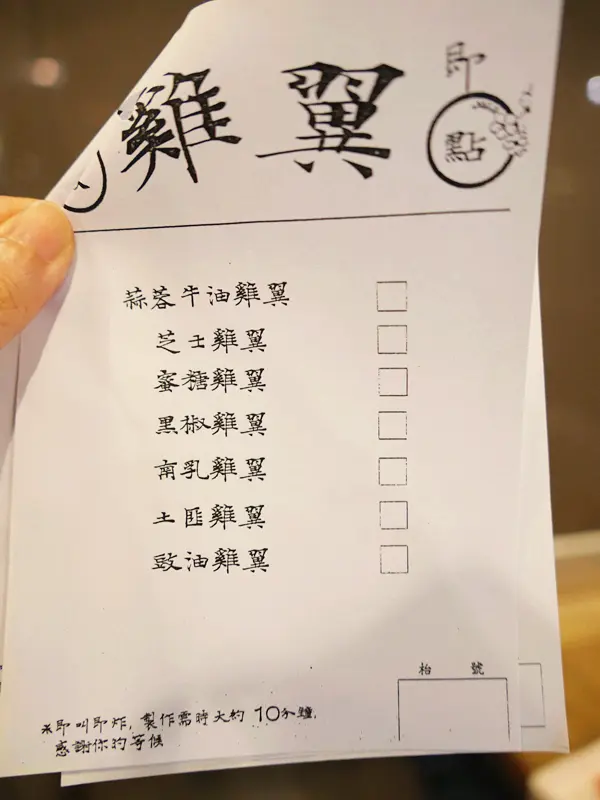 雞翼
即
點
蒜蓉牛油雞翼
芝士雞翼
蜜糖雞翼
黑椒雞翼
南乳雞翼
土匪雞翼
豉油雞翼
枱 號
*即叫即炸,製作需時大約 10分鐘,
感謝你的等候